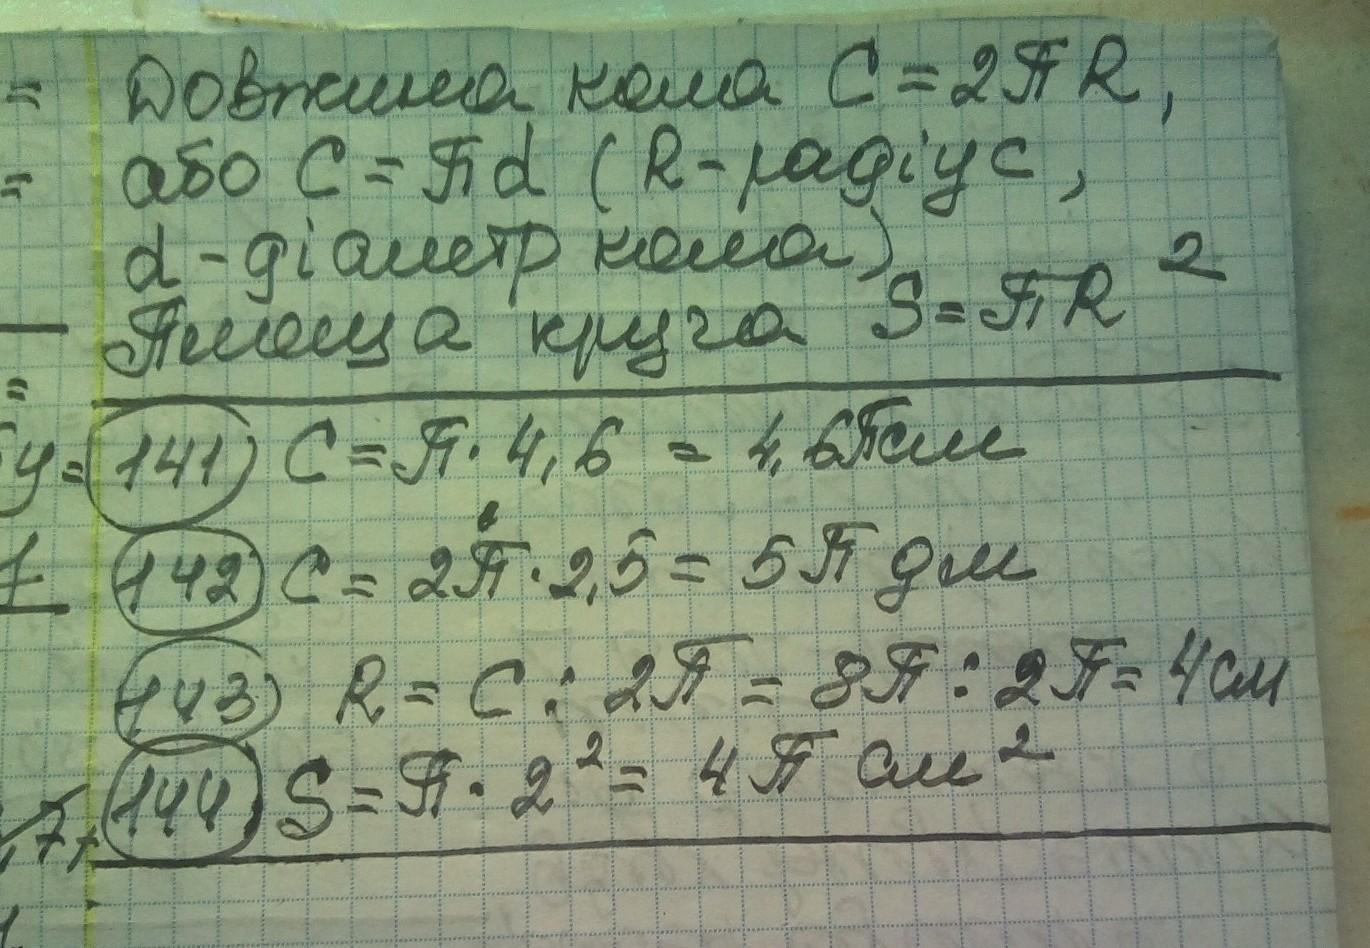 Довжина кола C = 2πR,
або C = πd (R - радіус,
d - діаметр кола)
Площа круга S = πR²
141) C = π · 4,6 = 4,6π см
142) C = 2π · 2,5 = 5π дм
143) R = C : 2π = 8π : 2π = 4 см
144) S = π · 2² = 4π см²